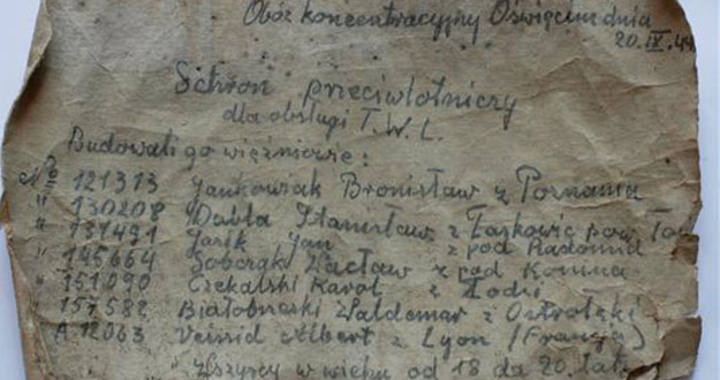 Obóz koncentracyjny Oświęcim dnia
20.IX.44
Schron przeciwlotniczy
dla obsługi T.W.L.
Budowali go więźniowie:
No 121313 Jankowiak Bronisław z Poznania
" 130208 Dubla Stanisław z Łaskowic pow.
" 131491 Jasik Jan z pod Radomia
" 145664 Sobczak Wacław z pod Konina
" 151090 Czekalski Karol z Łodzi
" 157582 Białobrzeski Waldemar z Ostrołęki
A 12063 Veissid Albert z Lyon (Francja)
Wszyscy w wieku od 18 do 20 lat.